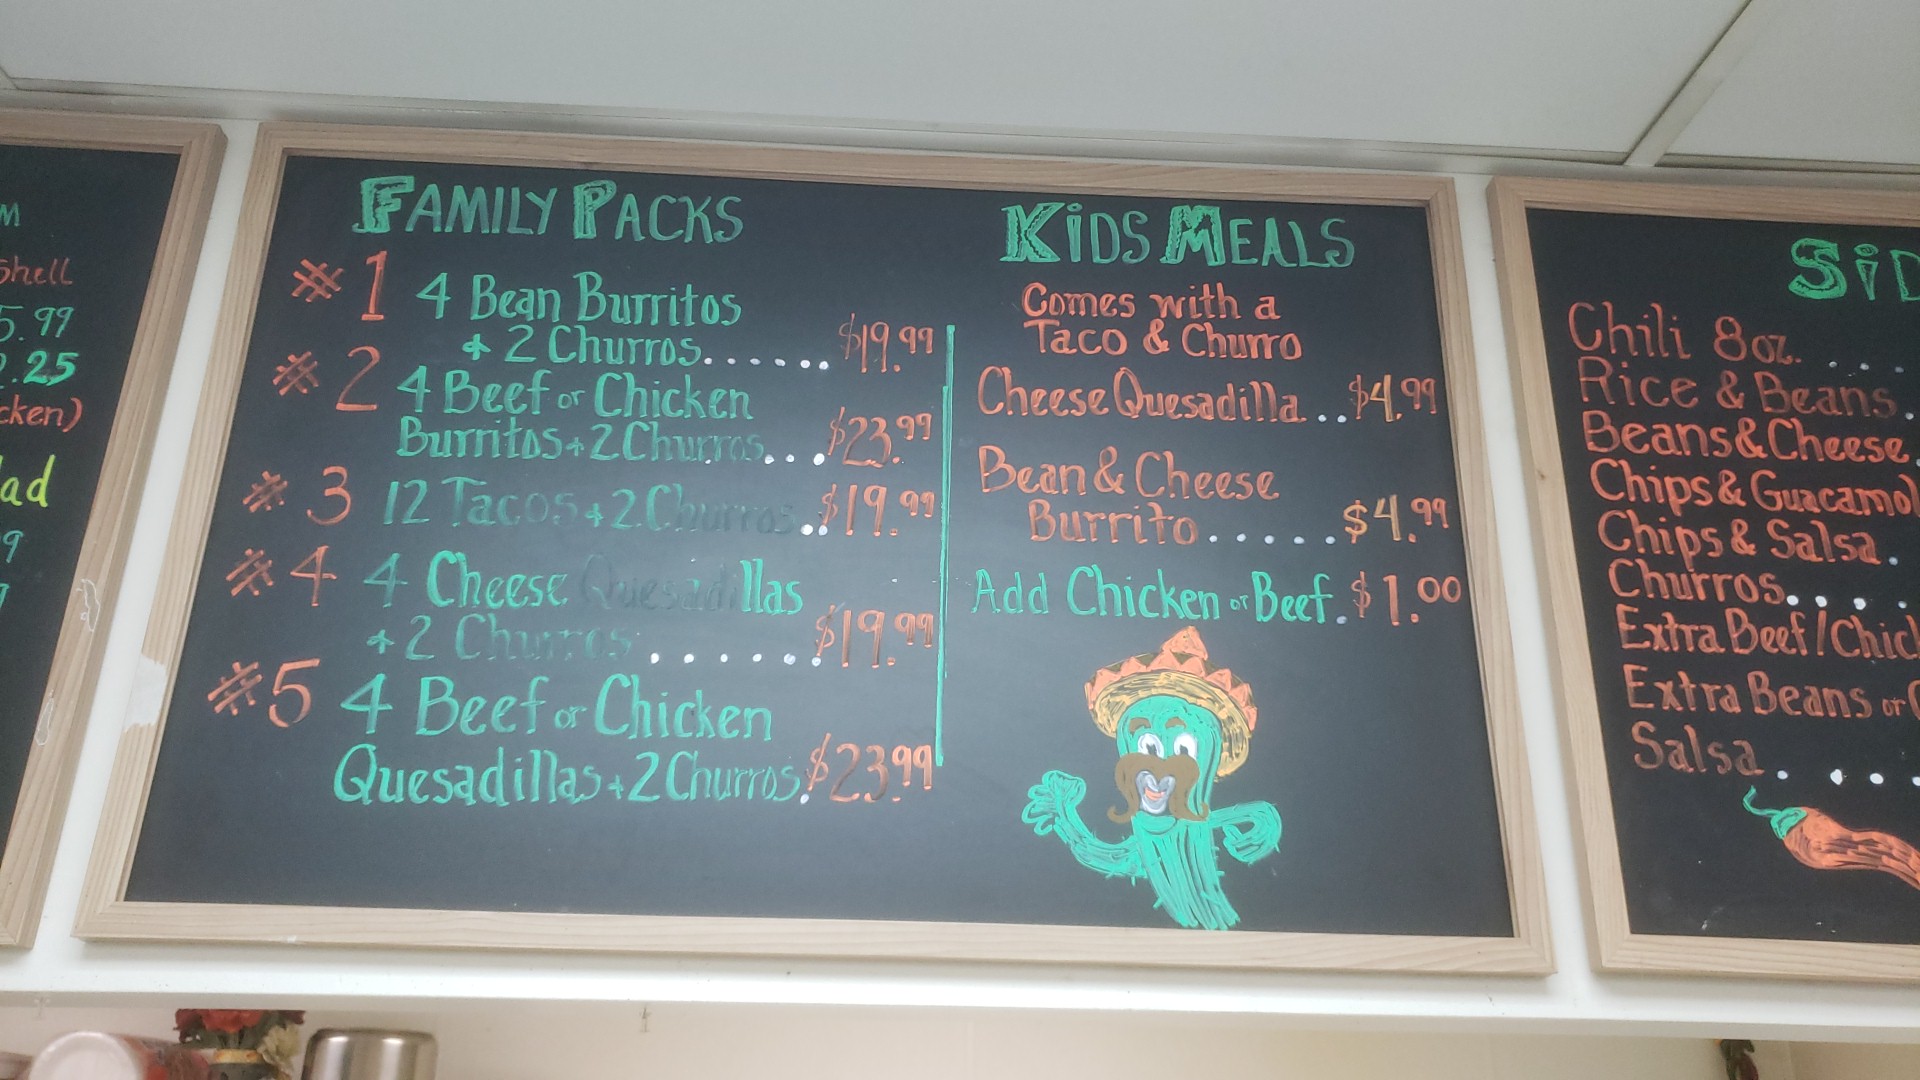 M
Shell
5.99
.25
cken)
ad
9
FAMILY PACKS
#1 4 Bean Burritos
+ 2 Churros...... $19.99
#2 4 Beef or Chicken
Burritos + 2 Churros... $23.99
#3 12 Tacos + 2 Churros.. $19.99
#4 4 Cheese Quesadillas
+ 2 Churros ...... $19.99
#5 4 Beef or Chicken
Quesadillas + 2 Churros. $23.99
KiDS MEALS
Comes with a
Taco & Churro
Cheese Quesadilla .. $4.99
Bean & Cheese
Burrito ...... $4.99
Add Chicken or Beef. $1.00
SiD
Chili 8 oz. ...
Rice & Beans.
Beans & Cheese.
Chips & Guacamol
Chips & Salsa .
Churros....
Extra Beef / Chick
Extra Beans or
Salsa ....